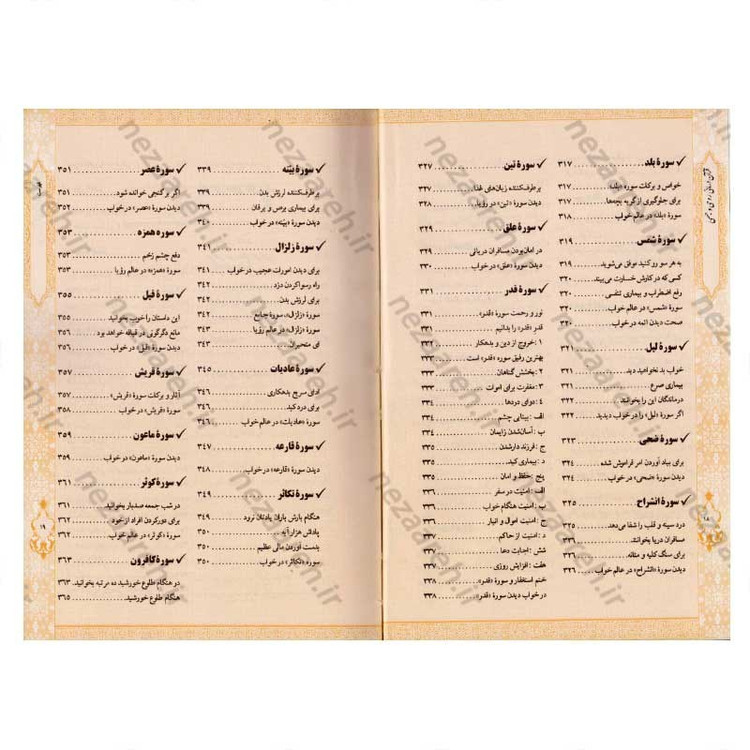 ✓ سورهٔ بلد ........ ۳۱۷
خواص و برکات سوره «بلد» ........ ۳۱۷
برای جلوگیری از گریه بچه‌ها ........ ۳۱۷
سورهٔ «بلد» در عالم خواب ........ ۳۱۸
✓ سورهٔ شمس ........ ۳۱۹
به هر سو رو کنید موفق می‌شوید ........ ۳۱۹
کسی که در کارش خسارت می‌بیند
رفع اضطراب و بیماری تنفسی ........ ۳۲۰
سورهٔ «شمس» در عالم خواب ........ ۳۲۰
صحت دیدن ائمه در خواب ........ ۳۲۰
✓ سورهٔ لیل ........ ۳۲۱
خواب بد نخواهید دید ........ ۳۲۱
بیماری صرع ........ ۳۲۱
درماندگان این را بخوانند ........ ۳۲۲
اگر سورهٔ «لیل» را در خواب دیدید ........ ۳۲۲
✓ سورهٔ ضحی ........ ۳۲۳
برای بیاد آوردن امر فراموش شده ........ ۳۲۴
دیدن سورهٔ «ضحی» در خواب ........ ۳۲۴
✓ سورهٔ انشراح ........ ۳۲۵
درد سینه و قلب را شفا می‌دهد ........ ۳۲۵
مسافران دریا بخوانند ........ ۳۲۶
برای سنگ کلیه و مثانه ........ ۳۲۶
دیدن سورهٔ «انشراح» در عالم خواب ........ ۳۲۶
✓ سورهٔ تین ........ ۳۲۷
برطرف‌کننده زیان‌های غذا ........ ۳۲۷
دیدن سورهٔ «تین» در رؤیا ........ ۳۲۸
✓ سورهٔ علق ........ ۳۲۹
در امان بودن مسافران دریائی ........ ۳۲۹
دیدن سورهٔ «علق» در خواب ........ ۳۳۰
✓ سورهٔ قدر ........ ۳۳۱
نور و رحمت سورهٔ «قدر» ........ ۳۳۱
قدرِ «قدر» را بدانیم ........ ۳۳۱
۱ : خروج از دین و بدهکار ........ ۳۳۲
بهترین رفیق سورهٔ «قدر» است ........ ۳۳۳
۲ : بخشش گناهان ........ ۳۳۳
۳ : مغفرت برای اموات ........ ۳۳۳
۴ : دوای دردها ........ ۳۳۴
الف : بینایی چشم ........ ۳۳۴
ب : آسان‌شدن زایمان ........ ۳۳۴
ج : فرزنددار شدن ........ ۳۳۵
د : بیماری کبد ........ ۳۳۵
پنج : حفظ و امان ........ ۳۳۵
الف : امنیت در سفر ........ ۳۳۶
ب : امنیت هنگام خواب ........ ۳۳۶
ج : امنیت اموال و انبار ........ ۳۳۶
د : امنیت از حاکم ........ ۳۳۷
شش : اجابت دعا ........ ۳۳۷
هفت : افزایش روزی ........ ۳۳۷
ختم استغفار و سورهٔ «قدر»
در خواب دیدن سورهٔ «قدر» ........ ۳۳۸
✓ سورهٔ بیّنه ........ ۳۳۹
برطرف‌کننده لرزش بدن ........ ۳۳۹
برای بیماری برص و یرقان ........ ۳۳۹
دیدن سورهٔ «بیّنه» در خواب
✓ سورهٔ زلزال ........ ۳۴۱
برای دیدن امورات عجیب در خواب ........ ۳۴۱
راه رسوا کردن دزد ........ ۳۴۲
برای لرزش بدن ........ ۳۴۲
سورهٔ «زلزال»، سورهٔ جامع ........ ۳۴۲
سورهٔ «زلزال» در عالم رؤیا ........ ۳۴۳
ای متحیران ........ ۳۴۳
✓ سورهٔ عادیات ........ ۳۴۵
ادای سریع بدهکاری ........ ۳۴۶
برای درد کبد ........ ۳۴۶
سورهٔ «عادیات» در عالم خواب ........ ۳۴۶
✓ سورهٔ قارعه ........ ۳۴۷
دیدن سورهٔ «قارعه» در خواب ........ ۳۴۸
✓ سورهٔ تکاثر ........ ۳۴۹
هنگام بارش باران یادتان نرود ........ ۳۴۹
پاداش هزار آیه ........ ۳۵۰
بدست آوردن مالی عظیم ........ ۳۵۰
سورهٔ «تکاثر» در خواب ........ ۳۵۰
✓ سورهٔ عصر ........ ۳۵۱
اگر بر گنجی خوانده شود ........ ۳۵۱
دیدن سورهٔ «عصر» در خواب ........ ۳۵۲
✓ سوره همزه ........ ۳۵۳
دفع چشم زخم ........ ۳۵۳
سورهٔ «همزه» در عالم رؤیا ........ ۳۵۳
✓ سورهٔ فیل ........ ۳۵۵
این داستان را خوب بخوانید ........ ۳۵۵
مانع دگرگونی در قیافه خواهد بود
دیدن سورهٔ «فیل» در خواب ........ ۳۵۶
✓ سورهٔ قریش ........ ۳۵۷
آثار و برکات سورهٔ «قریش» ........ ۳۵۷
سورهٔ «قریش» در خواب ........ ۳۵۸
✓ سورهٔ ماعون ........ ۳۵۹
دیدن سورهٔ «ماعون» در خواب ........ ۳۵۹
✓ سورهٔ کوثر ........ ۳۶۱
در شب جمعه صدبار بخوانید ........ ۳۶۱
برای دور کردن افراد از خود ........ ۳۶۲
سورهٔ «کوثر» در عالم خواب ........ ۳۶۲
✓ سورهٔ کافرون ........ ۳۶۳
در هنگام طلوع خورشید ده مرتبه بخوانید. ۳۶۳
هنگام طلوع خورشید ........ ۳۶۵
فهرست
۱۹
nezaareh.ir